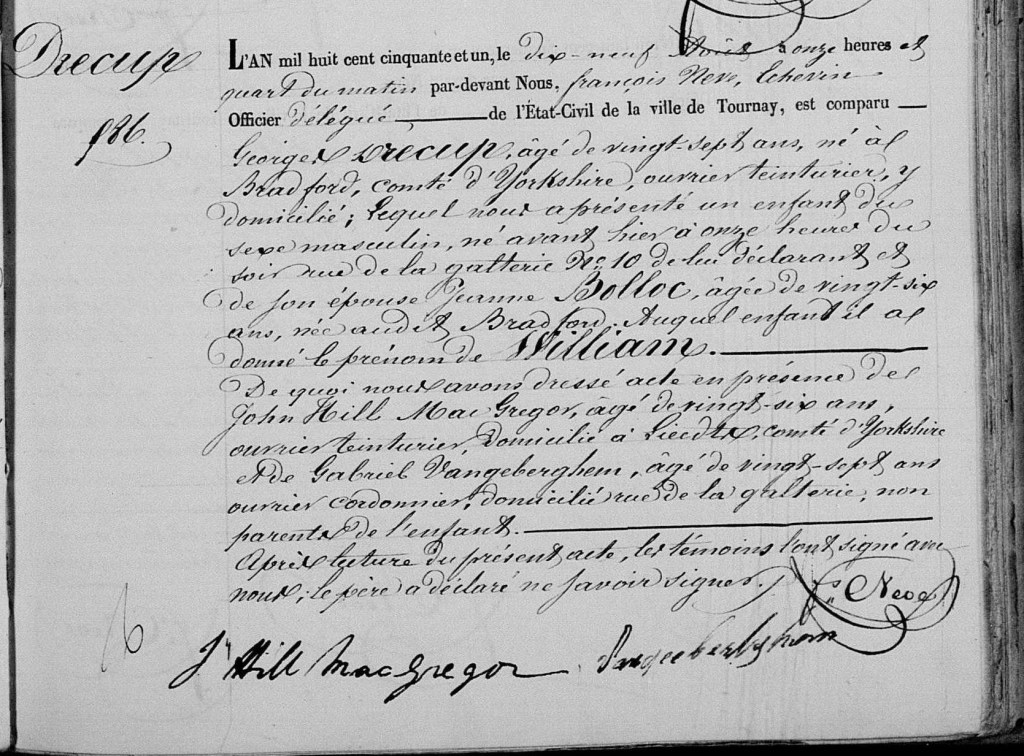 Drecup
986.
L'AN mil huit cent cinquante et un, le dix-neuf Août à onze heures et
quart du matin par-devant Nous, françois Neve, Echevin
Officier délégué de l'État-Civil de la ville de Tournay, est comparu
George Drecup, âgé de vingt-sept ans, né à
Bradford, comté d'Yorkshire, ouvrier teinturier, y
domicilié; Lequel nous a présenté un enfant du
sexe masculin, né avant hier à onze heures du
soir rue de la galterie No 10 de lui déclarant et
de son épouse Jeanne Bolloc, âgée de vingt-six
ans, née audit Bradford. Auquel enfant il a
donné le prénom de William.
De quoi nous avons dressé acte en présence de
John Hill Mac Gregor, âgé de vingt-six ans,
ouvrier teinturier, domicilié à Lieedts, comté d'Yorkshire
et de Gabriel Vangeberghem, âgé de vingt-sept ans
ouvrier cordonnier, domicilié rue de la galterie, non
parents de l'enfant.
Après lecture du présent acte, les témoins l'ont signé avec
nous; le père a déclaré ne savoir signer.
fs Neve
J Hill MacGregor Vangeberghem